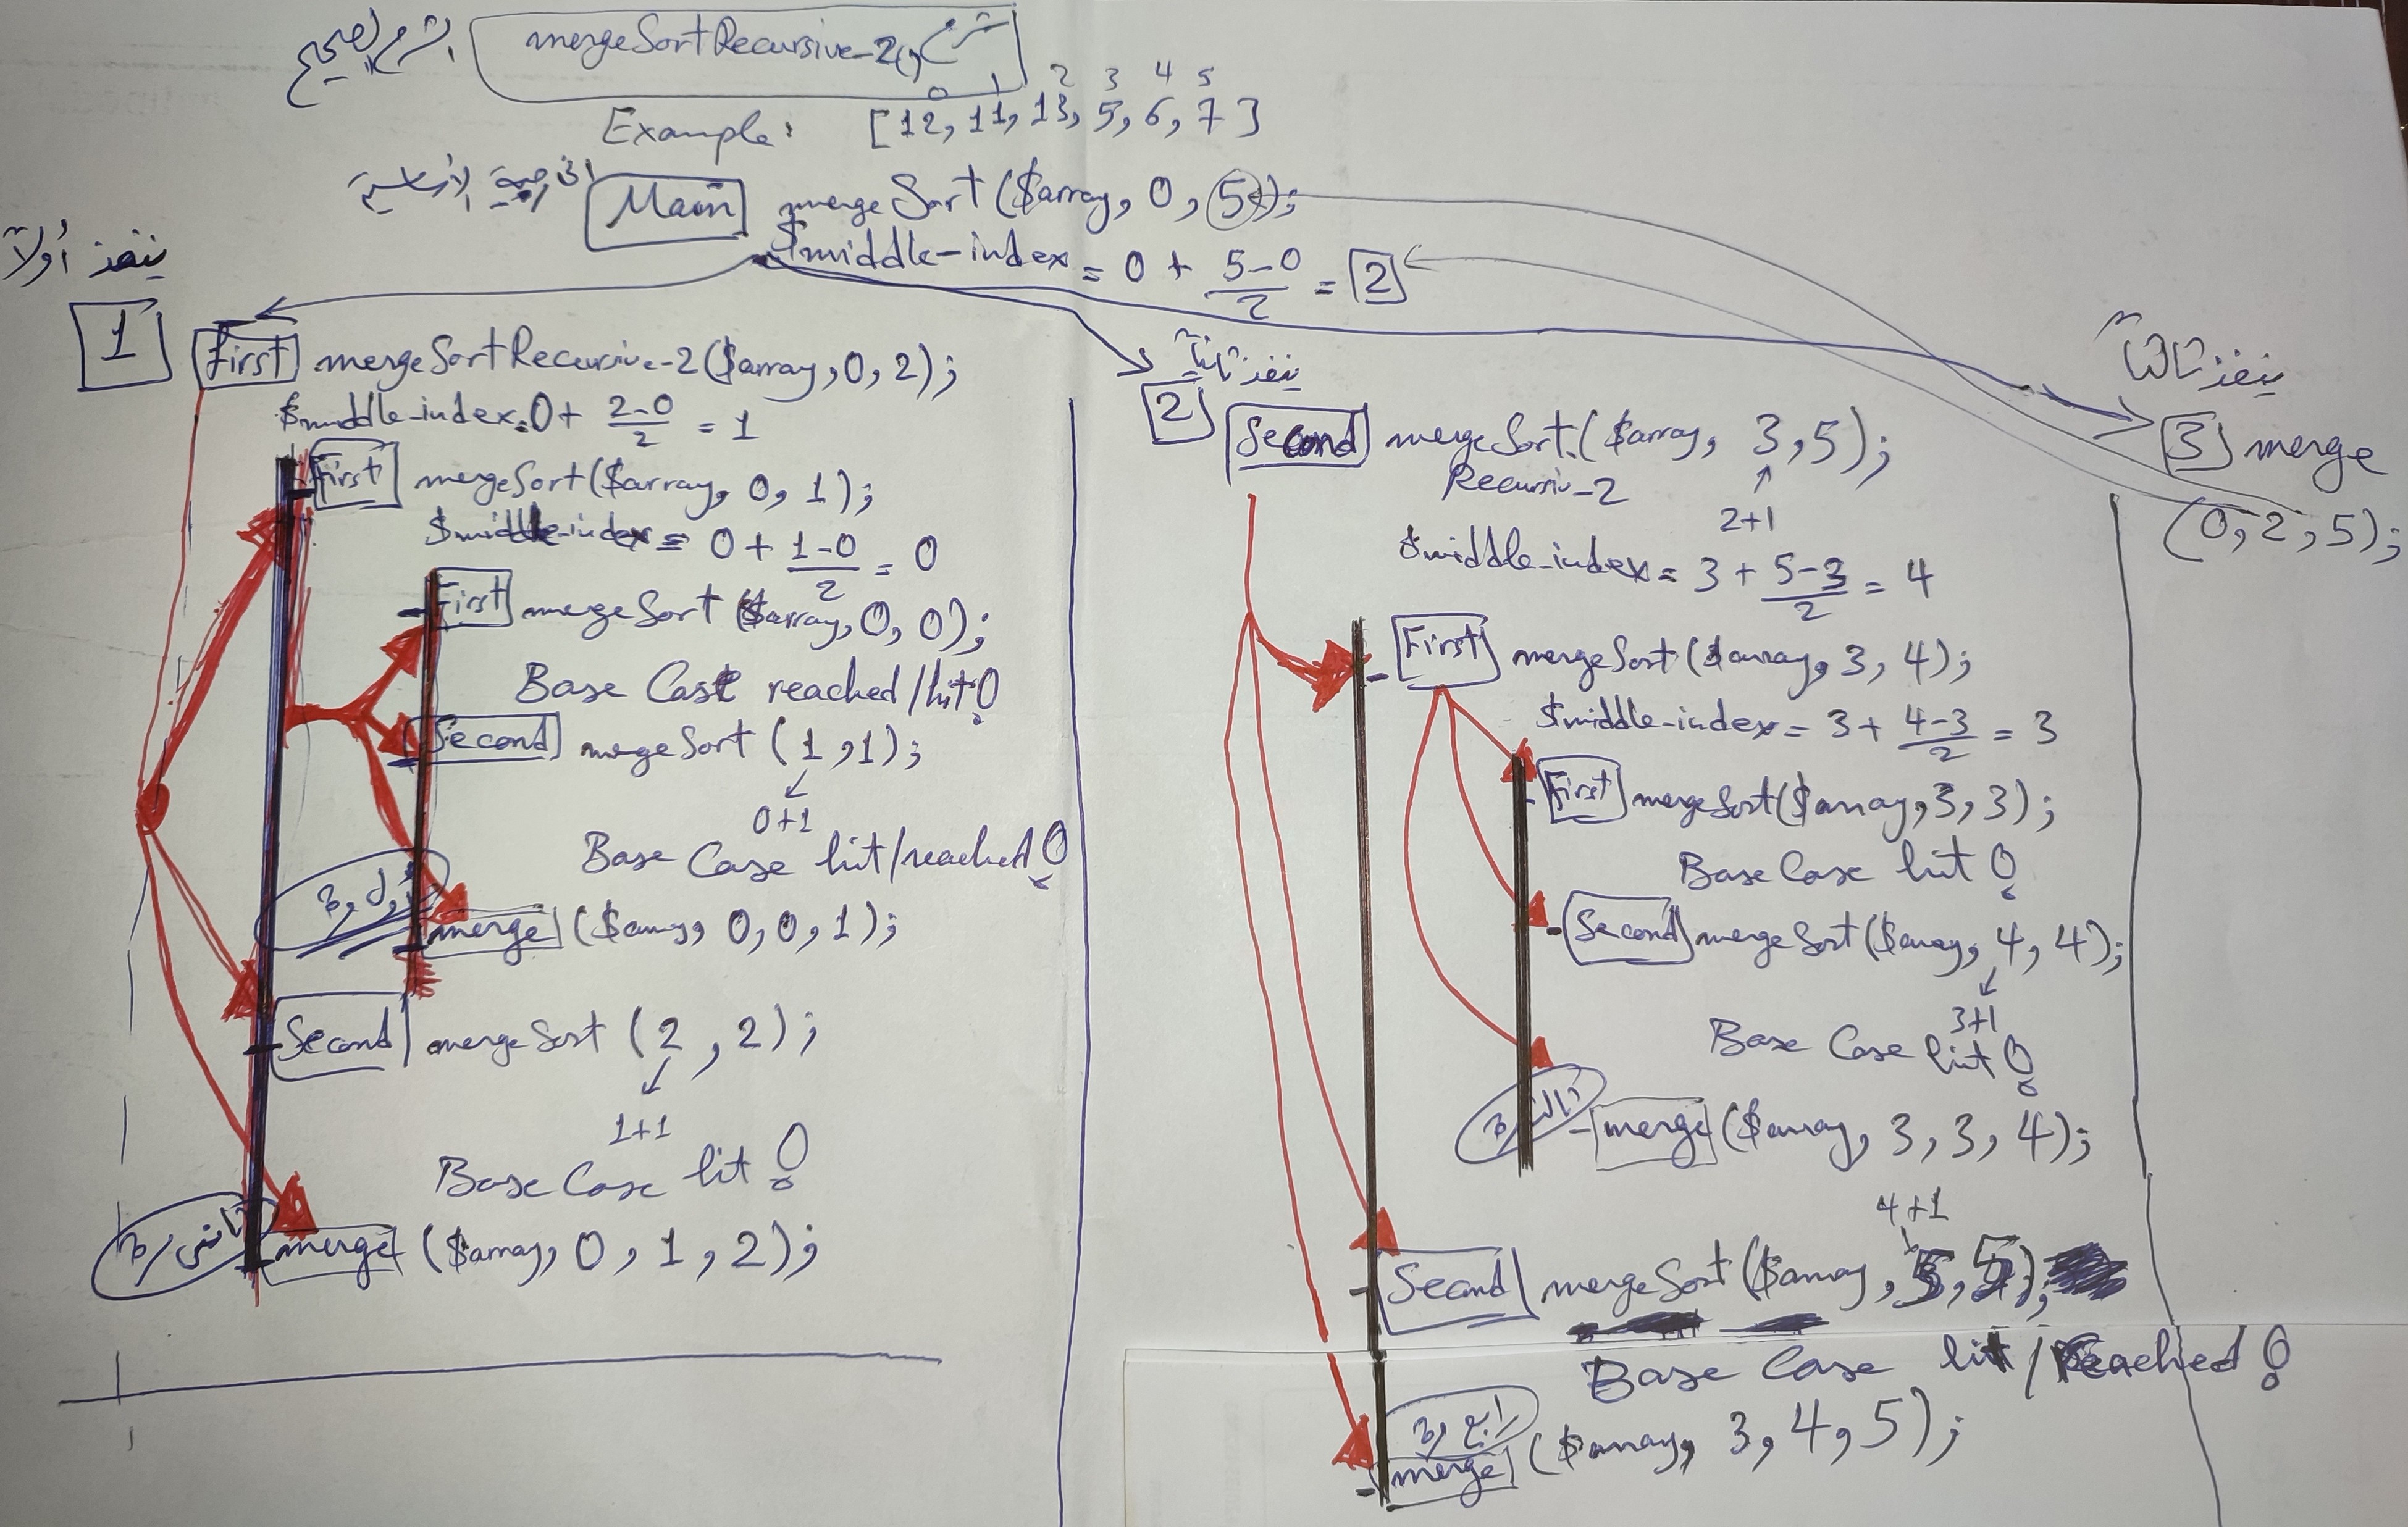 الشرح الصحيح
mergeSortRecursive-2() شرح
0 1 2 3 4 5
Example: [12, 11, 13, 5, 6, 7]
Main mergeSort($array, 0, 5);
$middle-index = 0 + 5-0/2 = 2
ينفذ أولاً
1
First mergeSortRecursive-2($array, 0, 2);
$middle-index = 0 + 2-0/2 = 1
First mergeSort($array, 0, 1);
$middle-index = 0 + 1-0/2 = 0
First mergeSort($array, 0, 0);
Base Case reached/hit!
Second mergeSort (1, 1);
0+1
Base Case hit/reached!
merge ($array, 0, 0, 1);
Second mergeSort (2, 2);
1+1
Base Case hit!
merge ($array, 0, 1, 2);
ينفذ ثانياً
2
Second mergeSort ($array, 3, 5);
Recursiv-2
2+1
$middle-index = 3 + 5-3/2 = 4
First mergeSort($array, 3, 4);
$middle-index = 3 + 4-3/2 = 3
First mergeSort($array, 3, 3);
Base Case hit!
Second mergeSort($array, 4, 4);
3+1
Base Case hit!
merge ($array, 3, 3, 4);
4+1
Second mergeSort($array, 5, 5);
Base Case hit/reached!
merge ($array, 3, 4, 5);
ينفذ ثالثاً
3 merge
(0, 2, 5);